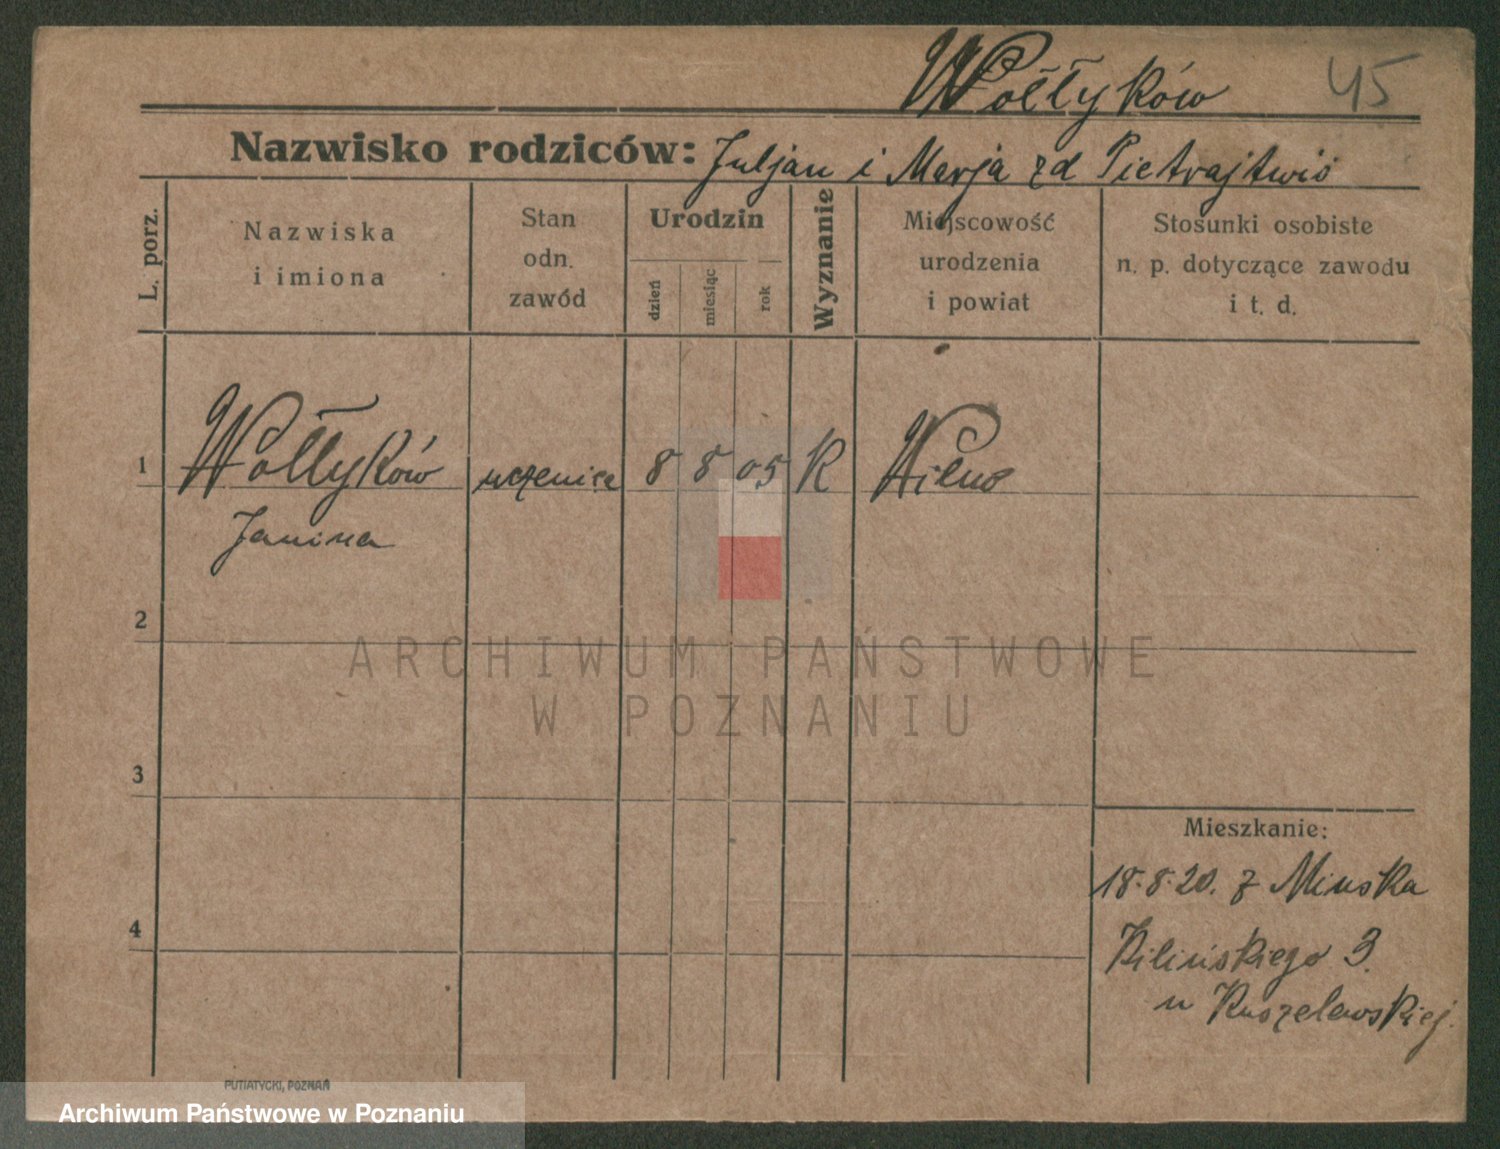 Wołłyków 45
Nazwisko rodziców: Juljan i Marja zd Pietrajtwis
L. porz.
Nazwiska
i imiona
Stan
odn.
zawód
Urodzin
dzień
miesiąc
rok
Wyznanie
Miejscowość
urodzenia
i powiat
Stosunki osobiste
n. p. dotyczące zawodu
i t. d.
1 Wołłyków uczenica 8 8 05 K Wilno
Janina
2
3
4
Mieszkanie:
18.8.20. z Minska
Kilińskiego 3.
u Kuszelewskiej.
ARCHIWUM PAŃSTWOWE
W POZNANIU
PUTIATYCKI, POZNAŃ
Archiwum Państwowe w Poznaniu